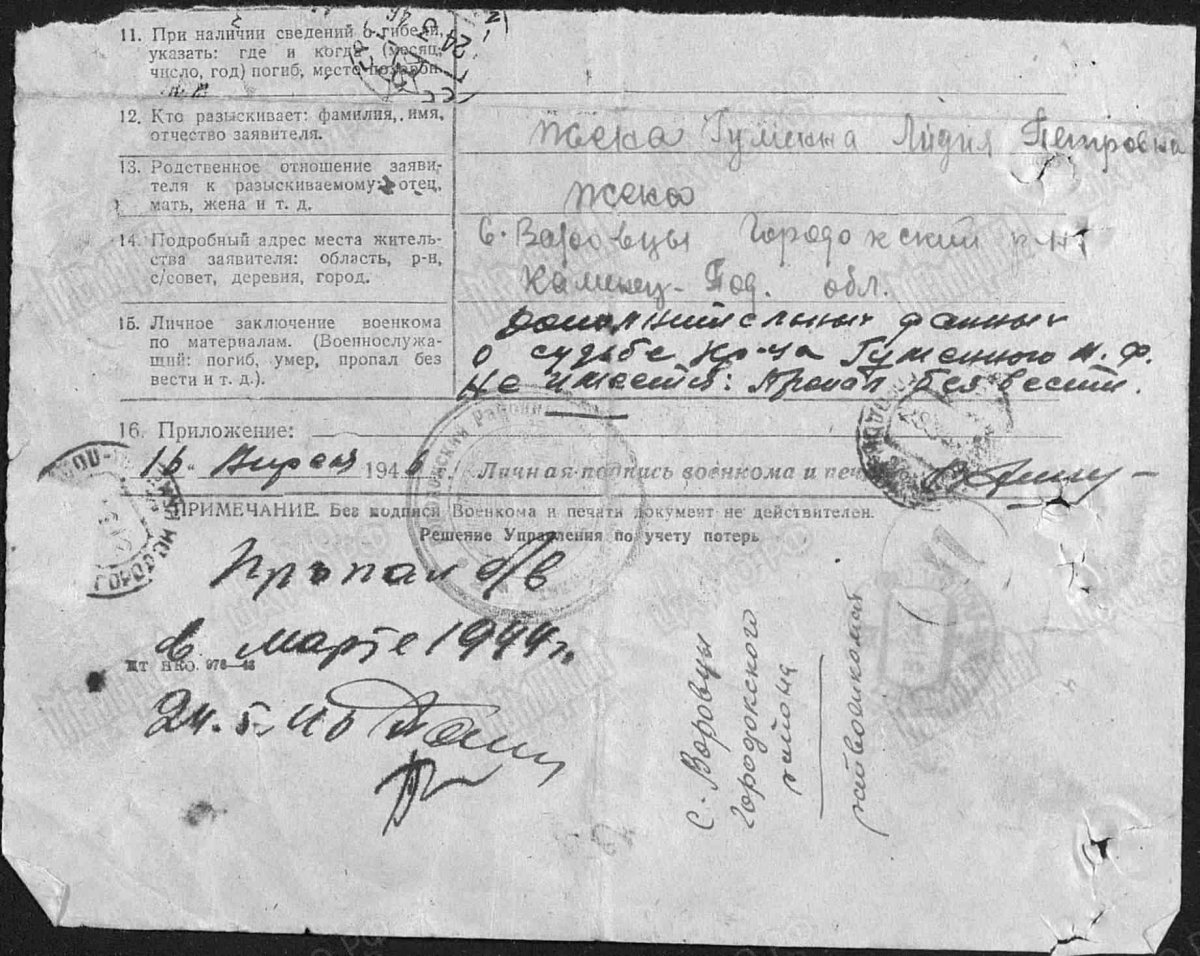 11. При наличии сведений о гибели,
указать: где и когда (месяц,
число, год) погиб, место похорон
12. Кто разыскивает: фамилия, имя,
отчество заявителя.
Жена Гуменна Лидия Петровна
13. Родственное отношение заяви-
теля к разыскиваемому: отец,
мать, жена и т. д.
Жена
14. Подробный адрес места житель-
ства заявителя: область, р-н,
с/совет, деревня, город.
Городокский р-н
Каменец-Под. обл.
15. Личное заключение военкома
по материалам. (Военнослужа-
щий: погиб, умер, пропал без
вести и т. д.).
Дополнительных данных
о судьбе кр-ца Гуменного
не имеется. Пропал без вести.
16. Приложение:
16 Апреля 1946 г. Личная подпись военкома и печать
ПРИМЕЧАНИЕ. Без подписи Военкома и печати документ не действителен.
Решение Управления по учету потерь
Пропал б/в
в марте 1944 г.
НКО. 978—48
24.5.46
с. Воровцы
Городокского
района
райвоенкомат